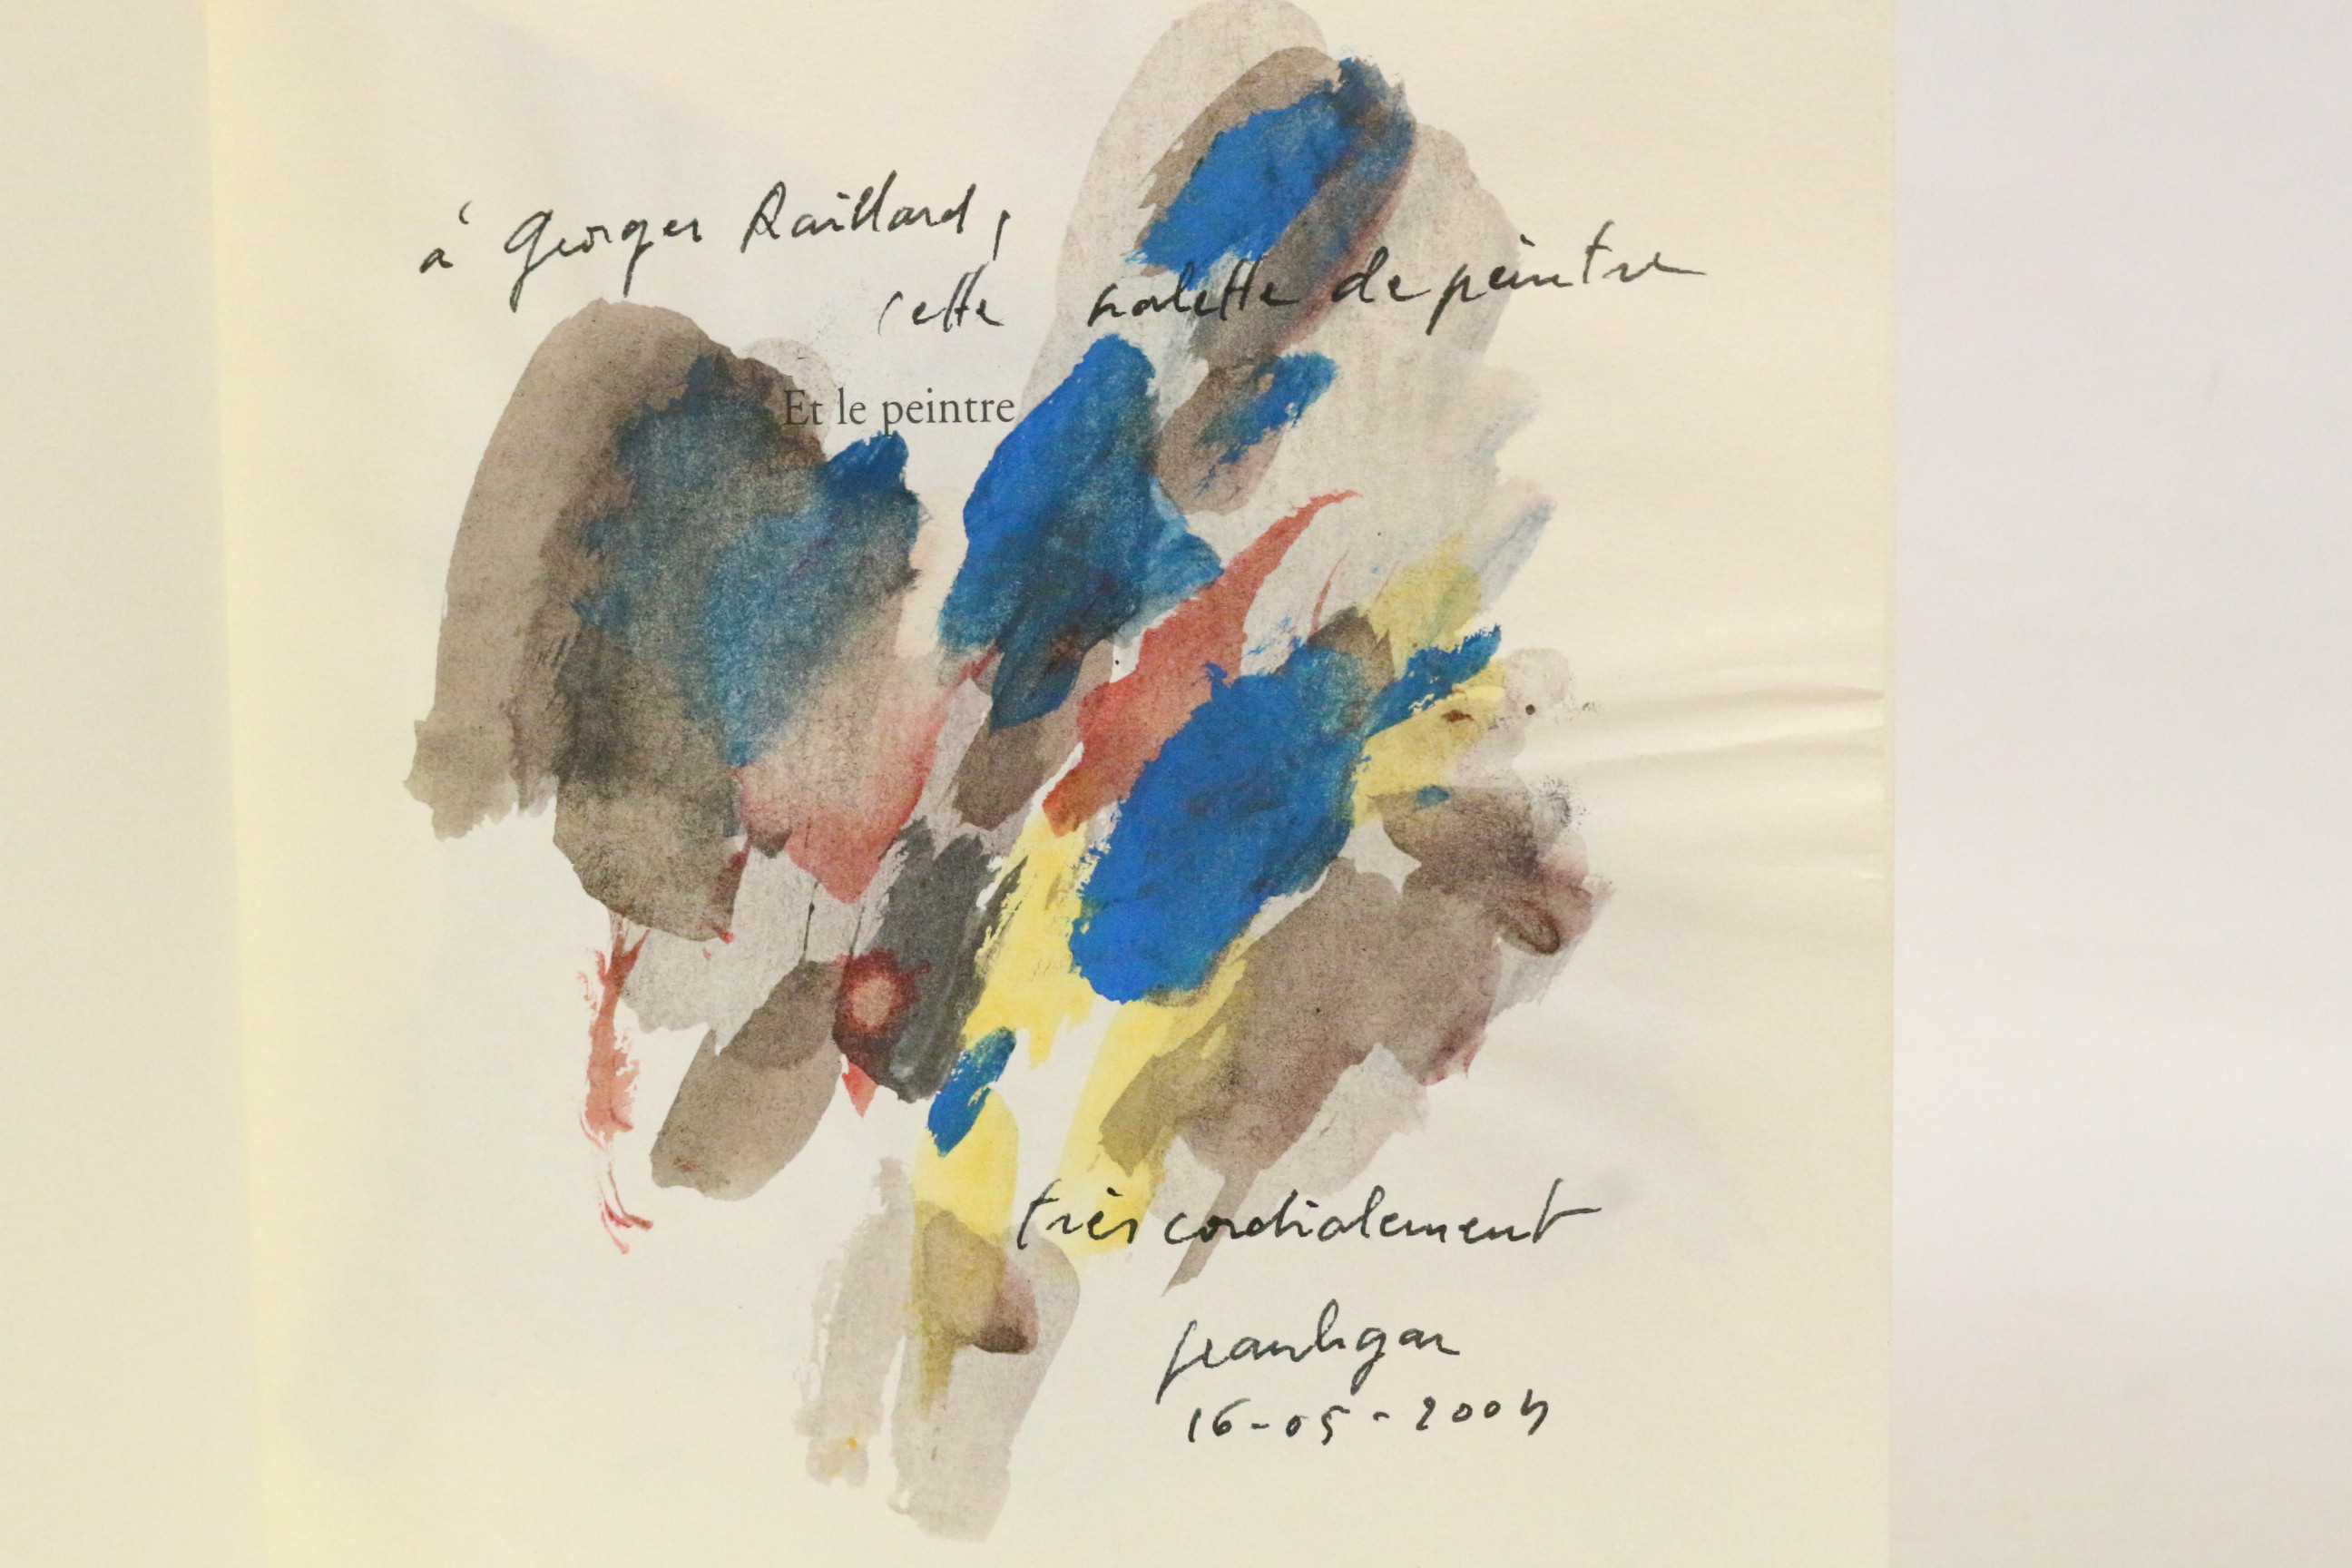 à Georges Raillard,
cette palette de peintre
Et le peintre
très cordialement
jeanligar
16-05-2004